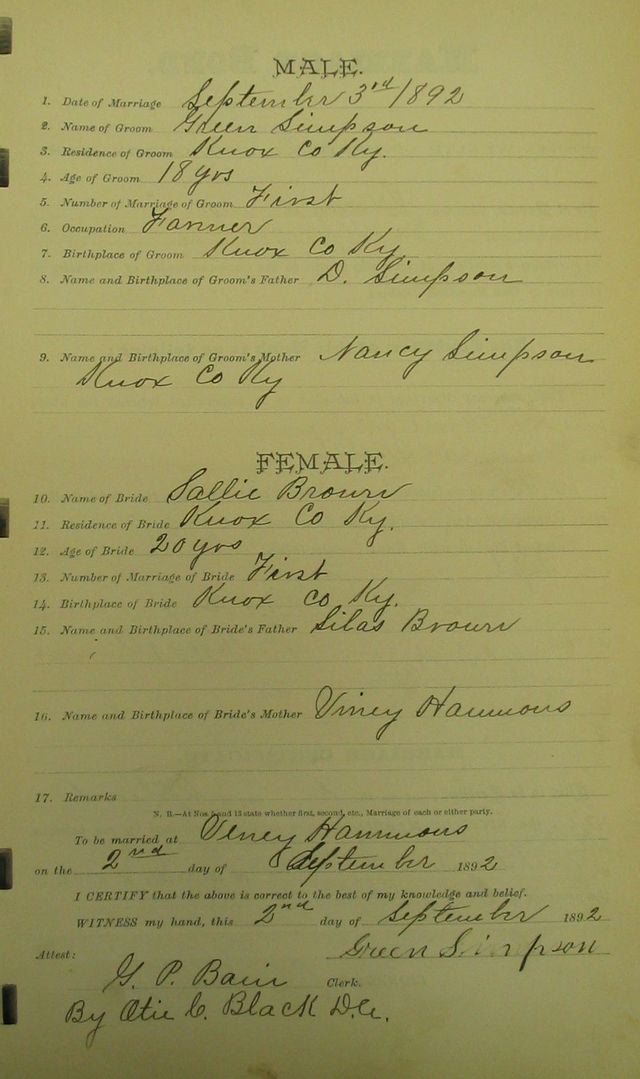 MALE.
1. Date of Marriage September 3rd 1892
2. Name of Groom Green Simpson
3. Residence of Groom Knox Co Ky.
4. Age of Groom 18 yrs
5. Number of Marriage of Groom First
6. Occupation Farmer
7. Birthplace of Groom Knox Co Ky
8. Name and Birthplace of Groom's Father D. Simpson
9. Name and Birthplace of Groom's Mother Nancy Simpson
Knox Co Ky
FEMALE.
10. Name of Bride Sallie Brown
11. Residence of Bride Knox Co Ky.
12. Age of Bride 20 yrs
13. Number of Marriage of Bride First
14. Birthplace of Bride Knox Co Ky.
15. Name and Birthplace of Bride's Father Silas Brown
16. Name and Birthplace of Bride's Mother Viney Hammons
17. Remarks
N. B.—At Nos. 5 and 13 state whether first, second, etc., Marriage of each or either party.
To be married at Viney Hammons
on the 2nd day of September 1892
I CERTIFY that the above is correct to the best of my knowledge and belief.
WITNESS my hand, this 2nd day of September 1892
Green Simpson
Attest:
G. P. Bain Clerk.
By Otie C. Black D.C.